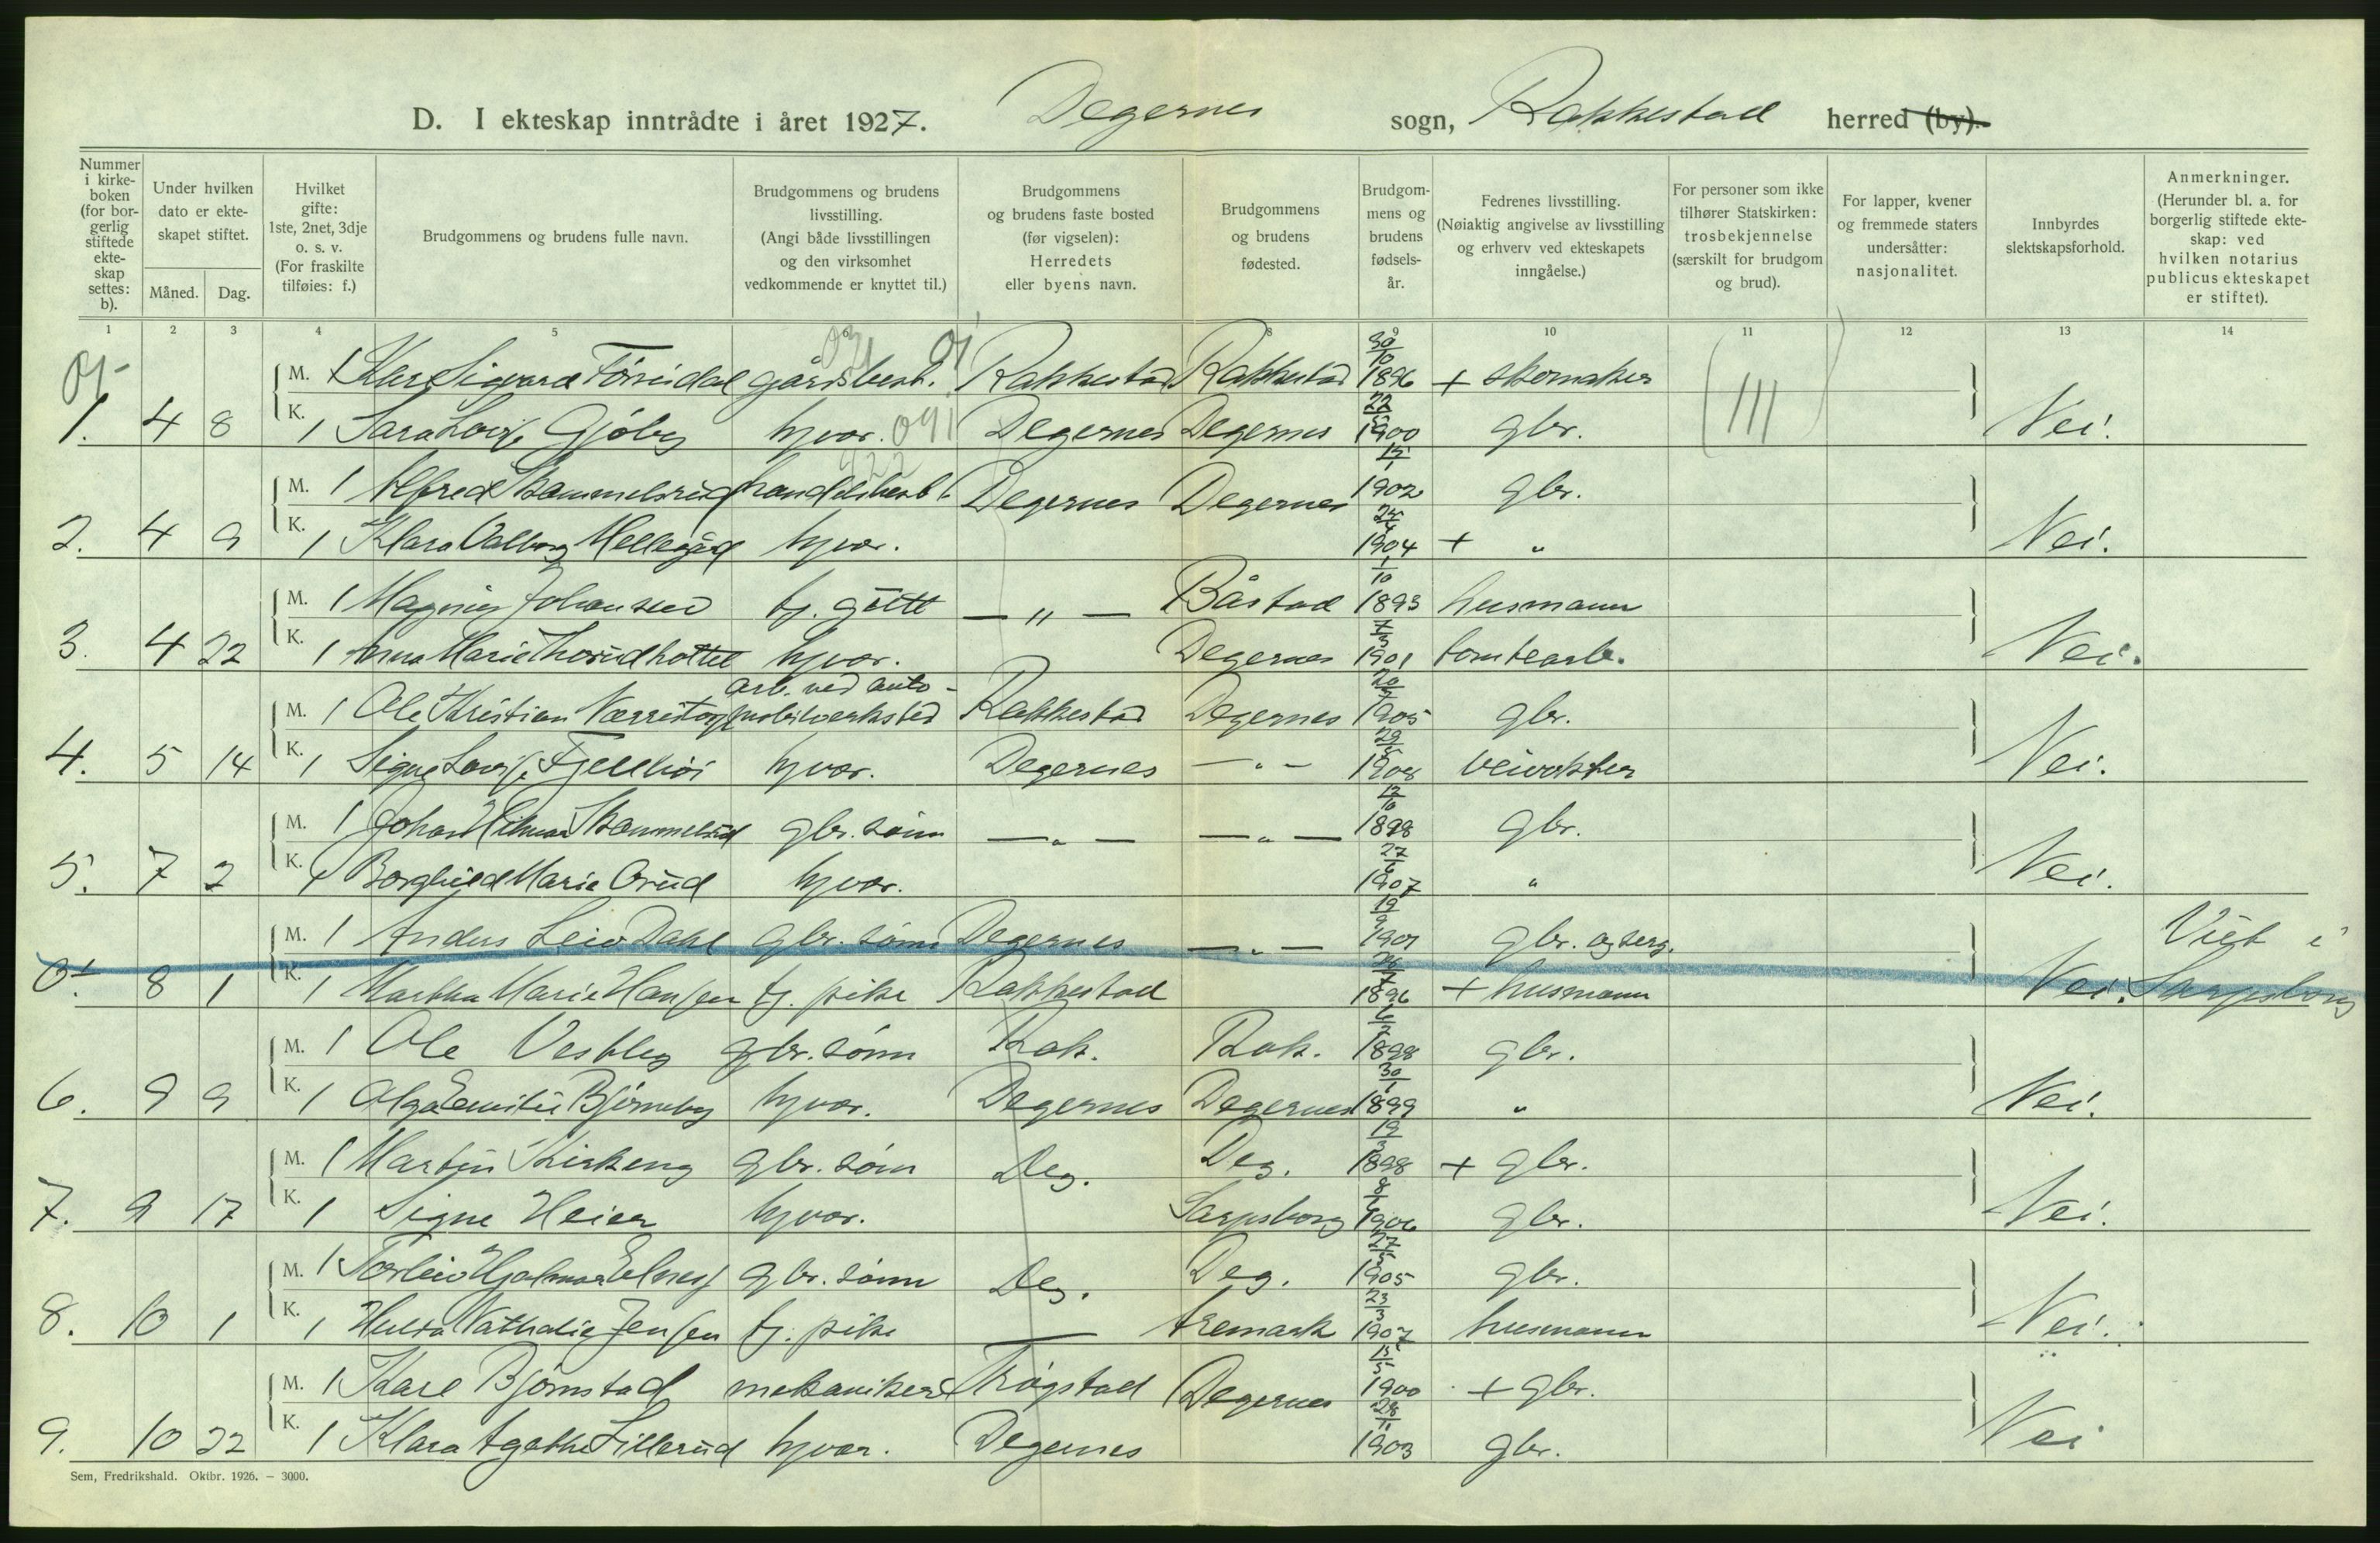 D. I ekteskap inntrådte i året 1927. Degernes sogn, Rakkestad herred (by).
Nummer i kirke-boken (for bor-gerlig stiftede ekte-skap settes: b).
Under hvilken dato er ekte-skapet stiftet.
Måned. Dag.
Hvilket gifte: 1ste, 2net, 3dje o. s. v. (For fraskilte tilføies: f.)
Brudgommens og brudens fulle navn.
Brudgommens og brudens livsstilling. (Angi både livsstillingen og den virksomhet vedkommende er knyttet til.)
Brudgommens og brudens faste bosted (før vigselen): Herredets eller byens navn.
Brudgommens og brudens fødested.
Brudgom-mens og brudens fødsels-år.
Fedrenes livsstilling. (Nøiaktig angivelse av livsstilling og erhverv ved ekteskapets inngåelse.)
For personer som ikke tilhører Statskirken: trosbekjennelse (særskilt for brudgom og brud).
For lapper, kvener og fremmede staters undersåtter: nasjonalitet.
Innbyrdes slektskapsforhold.
Anmerkninger. (Herunder bl. a. for borgerlig stiftede ekte-skap: ved hvilken notarius publicus ekteskapet er stiftet).
1 2 3 4 5 6 7 8 9 10 11 12 13 14
M. 1 Sigvard gårdsbest. Rakkestad Rakkestad 30/10 1896 + skomaker
1. 4 8 K. 1 Sara Lovise Gjøby hjvær. 091 Degernes Degernes 1900 gbr. (III) Nei.
M. 1 Alfred Skammelsrud handelsbest. Degernes Degernes 15/1 1902 gbr.
2. 4 9 K. 1 Klara Valborg Mellegård hjvær. 1904 + " Nei.
M. 1 Magnus Johansen tj. gutt — " — Båstad 1/10 1893 husmann
3. 4 22 K. 1 Anna Marie Thorudholtet hjvær. Degernes 7/3 1901 tomtearb. Nei.
arb. ved auto-
M. 1 Ole Kristian mobilverksted Rakkestad Degernes 1905 gbr.
4. 5 14 K. 1 Signe Lovise Fjellhøi hjvær. Degernes — " — 29/5 1908 veivokter Nei.
M. 1 Johan Hilmar Skammelsrud gbr. sønn — " — — " — 12/10 1898 gbr.
5. 7 2 K. 1 Borghild Marie Orud hjvær. 27/6 1907 " Nei.
M. 1 Anders Leiv Dahl gbr. sønn Degernes — " — 19/9 1901 gbr. og serg. Viet i
0+ 8 1 K. 1 Martha Marie Hansen tj. pike Rakkestad 1896 + husmann Nei. Sarpsborg
M. 1 Ole Vestby gbr. sønn Rak. Rak. 1898 gbr.
6. 9 9 K. 1 Olga Emilie Bjørneby hjvær. Degernes Degernes 30/1 1899 " Nei.
M. 1 Martin Kirkeng gbr. sønn Deg. Deg. 19/3 1898 + gbr.
7. 9 17 K. 1 Signe Heier hjvær. Sarpsborg 1906 gbr. Nei.
M. 1 Torleiv Hjalmar gbr. sønn Deg. Deg. 27/5 1905 gbr.
8. 10 1 K. 1 Hulda Nathalie Jensen tj. pike — Aremark 23/3 1907 husmann Nei.
M. 1 Kare Bjørnstad mekaniker Trøgstad Degernes 15/5 1900 + gbr.
9. 10 22 K. 1 Klara Agathe Lillerud hjvær. Degernes 1903 gbr. Nei
Sem, Fredrikshald. Oktbr. 1926. — 3000.